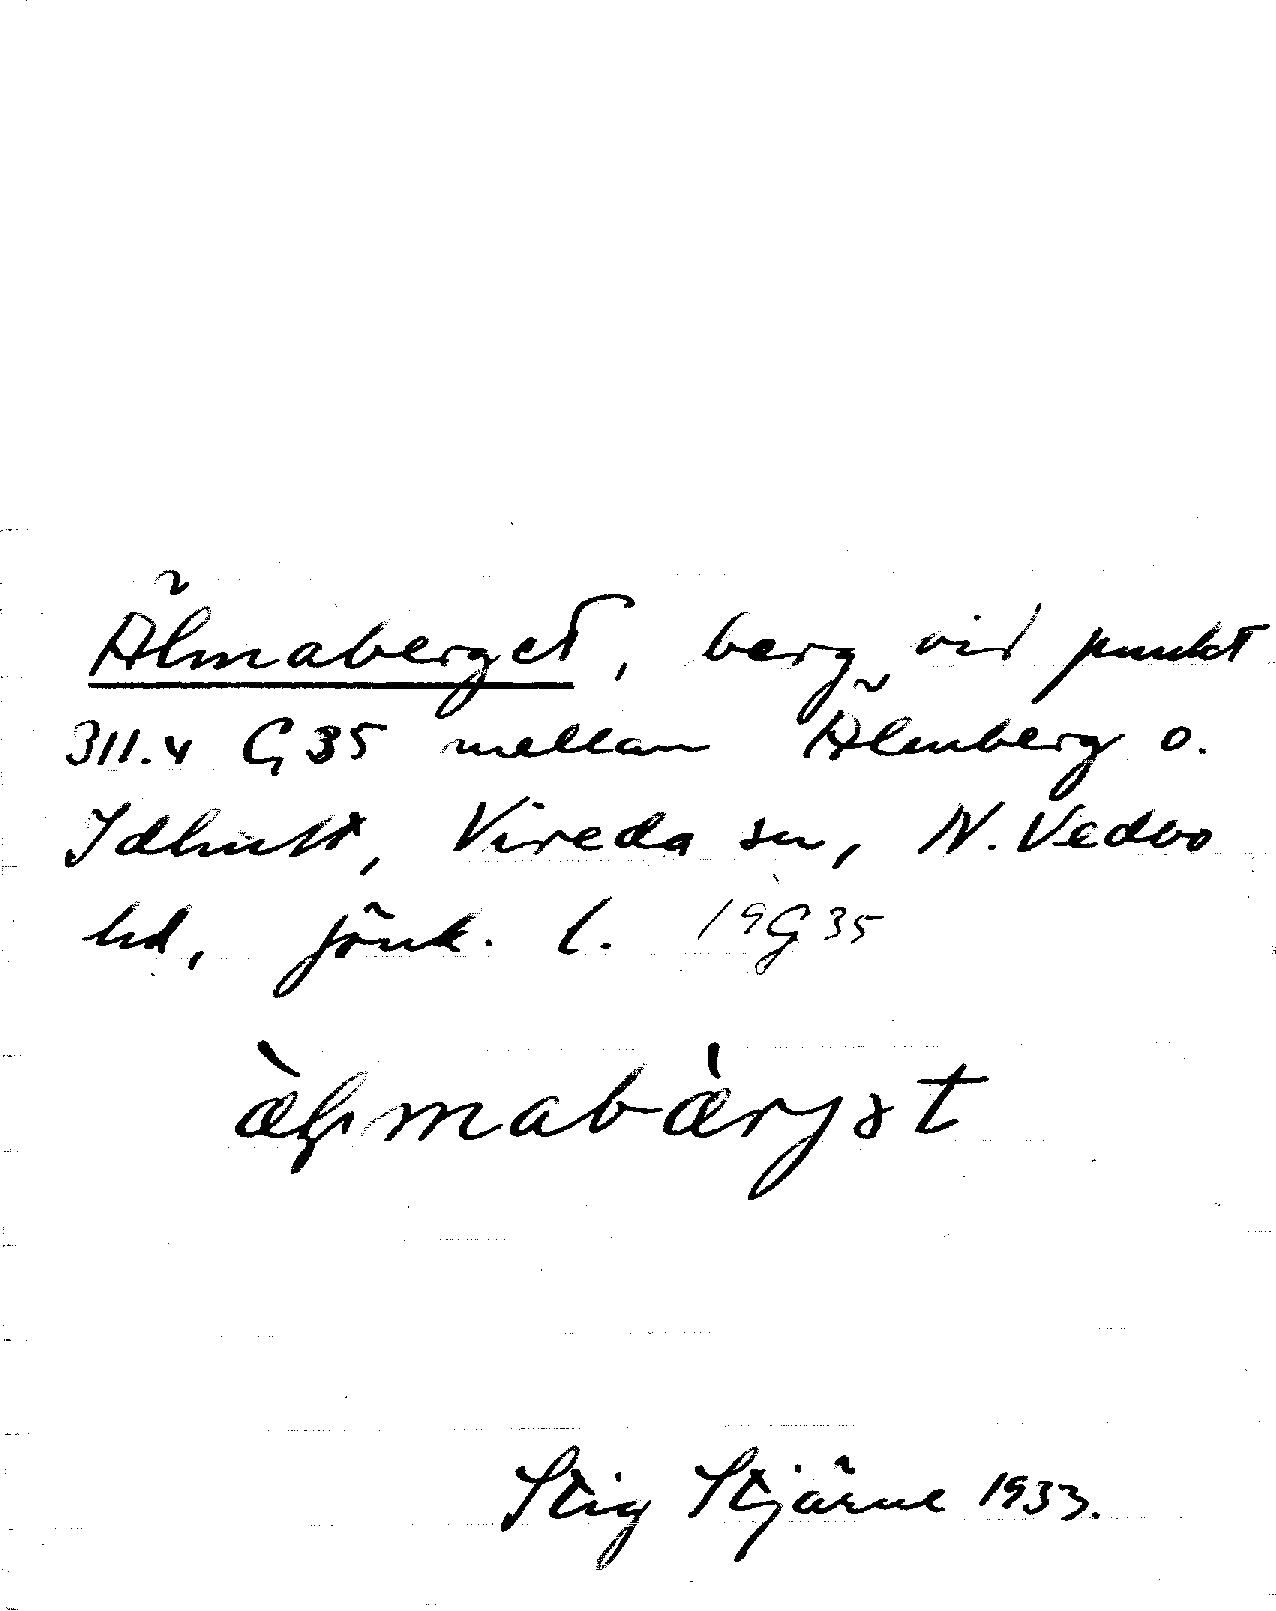 Älmaberget, berg vid punkt
311.4 G35 mellan Älmberg o.
Idhult, Vireda sn, N. Vedbo
hd, Jönk. l. 19G35
æ̀l̥mabæ̀rjət
Stig Stjärne 1933.